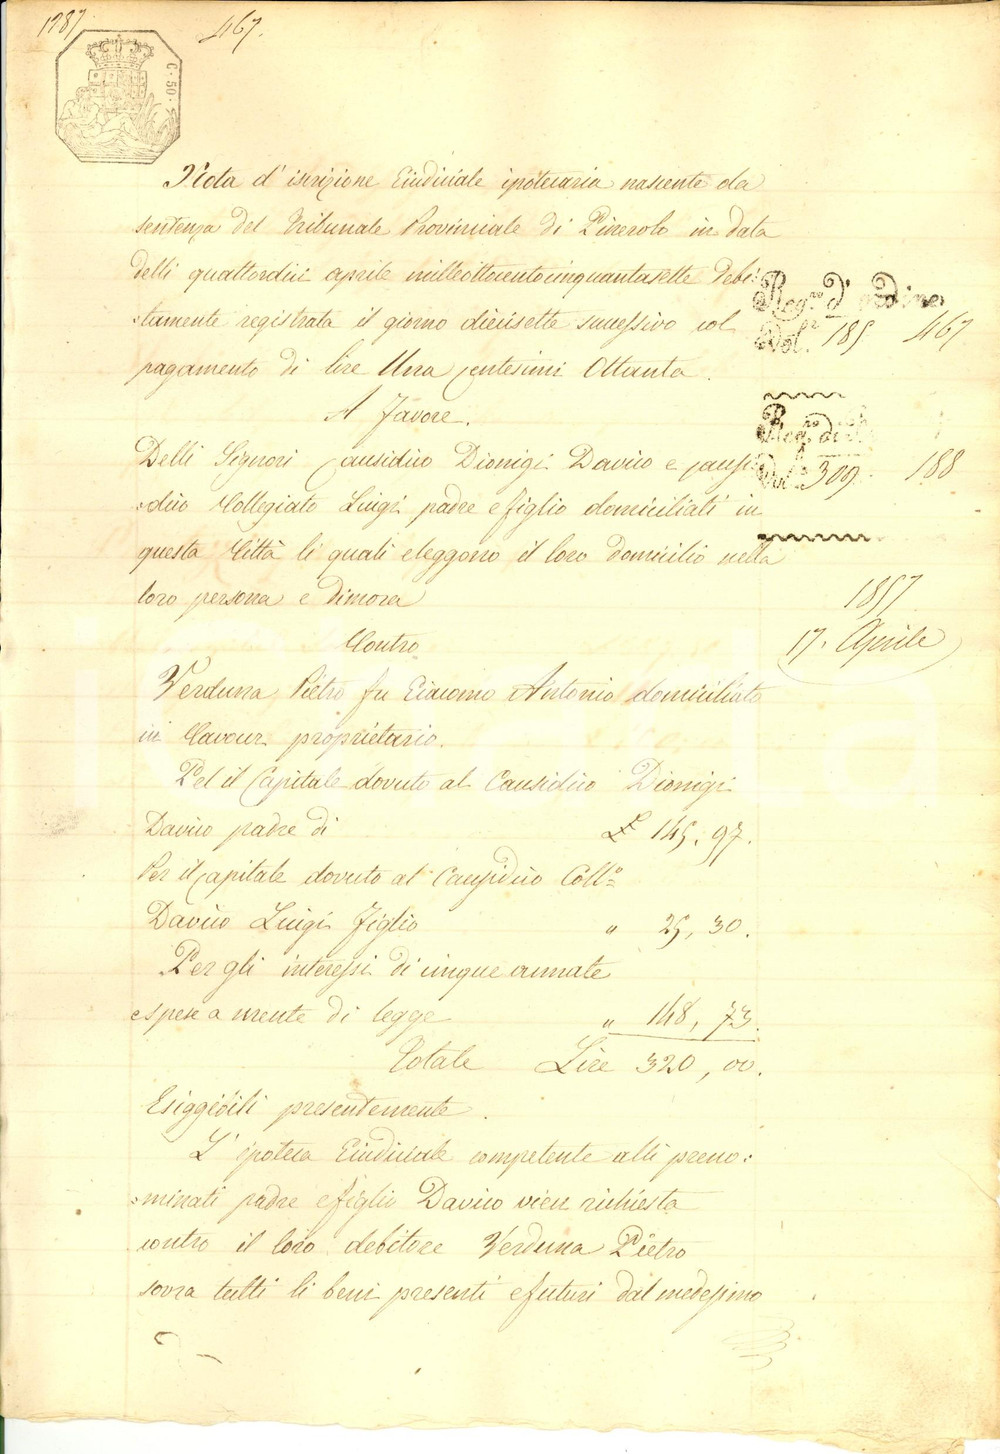 1787
467.
C. 50.
Nota d' iscrizione Giudiziale ipotecaria nascente da
sentenza del Tribunale Provinciale di Pinerolo in data
delli quattordici aprile milleottocentocinquantasette debi:
:tamente registrata il giorno diecisette successivo col
pagamento di lire Una centesimi Ottanta.
A favore.
Delli Signori Causidico Dionigi Davico e causi:
:dico Collegiato Luigi padre e figlio domiciliati in
questa Città li quali eleggono il loro domicilio nella
loro persona e dimora
Contro
Verduna Pietro fu Giacomo Antonio domiciliato
in Cavour proprietario.
Pel il Capitale dovuto al Causidico Dionigi
Davico padre di £ 145, 97.
Per il capitale dovuto al Causidico Coll.o
Davico Luigi figlio " 25, 30.
Per gli interessi di cinque annate
e spese a mente di legge " 148, 73.
Totale Lire 320, 00.
Esiggibili presentemente.
L' ipoteca Giudiciale competente alli preno:
:minati padre e figlio Davico vien richiesta
contro il loro debitore Verduna Pietro
sovra tutti li beni presenti e futuri dal medesimo
Reg.ro d' ordine
Vol. 185 467
Reg.ro di
Vol. 309 188
1857
17. Aprile